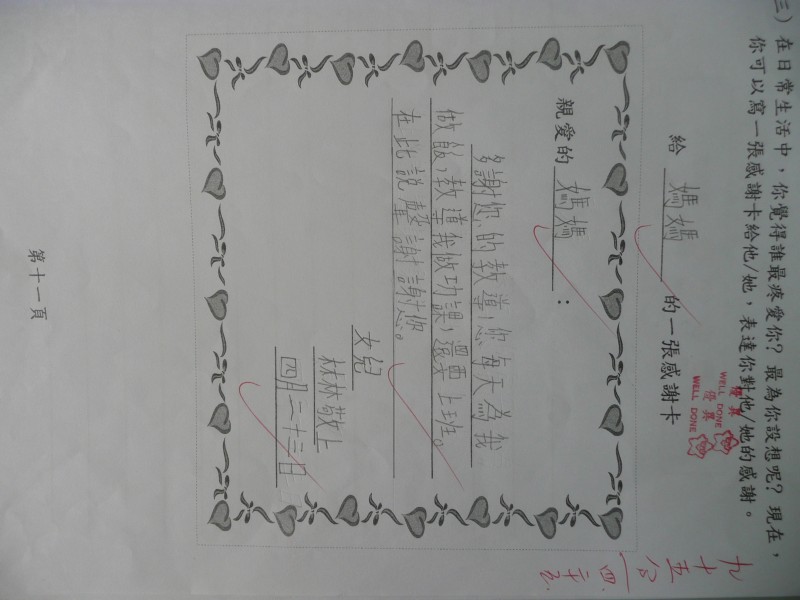 三）在日常生活中，你覺得誰最疼愛你？最為你設想呢？現在，
你可以寫一張感謝卡給他/她，表達你對他/她的感謝。
優異
WELL DONE
優異
WELL DONE
給 媽媽 的一張感謝卡
親愛的 媽媽：
多謝您的教導！您每天為我
做飯，教導我做功課，還要上班。
在此說聲謝謝您。
女兒
林林敬上
四月二十三日
九十五分
四．二十五
第十一頁